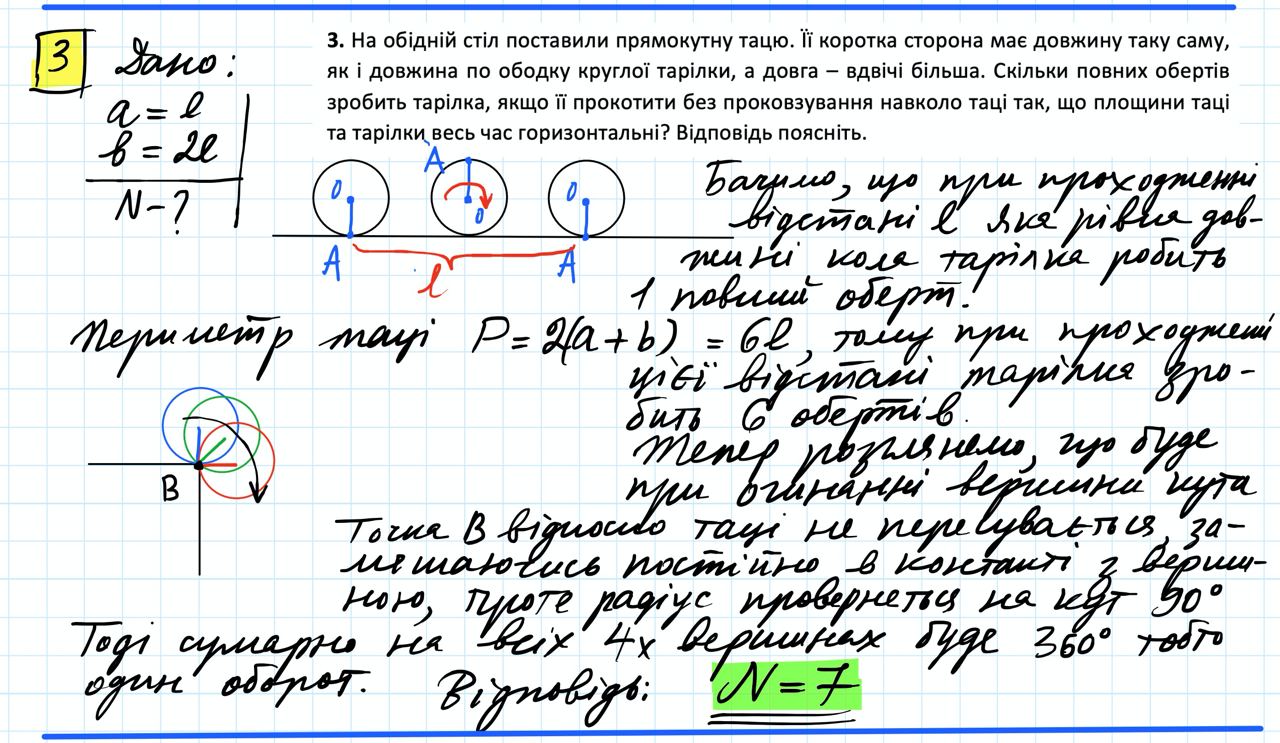 3
Дано:
a = l
b = 2l
N - ?
3. На обідній стіл поставили прямокутну тацю. Її коротка сторона має довжину таку саму,
як і довжина по ободку круглої тарілки, а довга – вдвічі більша. Скільки повних обертів
зробить тарілка, якщо її прокотити без проковзування навколо таці так, що площини таці
та тарілки весь час горизонтальні? Відповідь поясніть.
O A O O
A A
l
Бачимо, що при проходженні
відстані l яка рівна дов-
жині кола тарілка робить
1 повний оберт.
Периметр таці P = 2(a + b) = 6l, тому при проходженні
цієї відстані тарілка зро-
бить 6 обертів.
Тепер розглянемо, що буде
при огинанні вершини кута
B
Точка B відносно таці не пересувається, за-
лишаючись постійно в контакті з верши-
ною, проте радіус провернеться на кут 90°
Тоді сумарно на всіх 4х вершинах буде 360° тобто
один оборот. Відповідь: N = 7